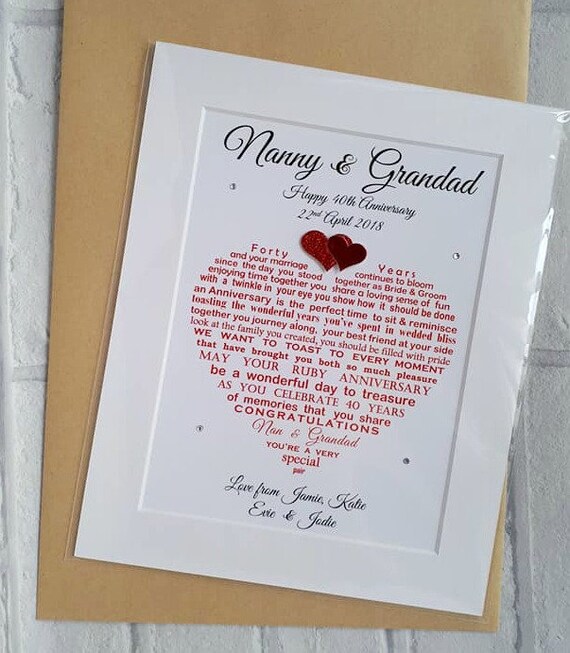 Nanny & Grandad
Happy 40th Anniversary
22nd April 2018
Forty Years
and your marriage continues to bloom
since the day you stood together as Bride & Groom
enjoying time together you share a loving sense of fun
with a twinkle in your eye you show how it should be done
an Anniversary is the perfect time to sit & reminisce
toasting the wonderful years you've spent in wedded bliss
together you journey along, your best friend at your side
look at the family you created, you should be filled with pride
WE WANT TO TOAST TO EVERY MOMENT
that have brought you both so much pleasure
MAY YOUR RUBY ANNIVERSARY
be a wonderful day to treasure
AS YOU CELEBRATE 40 YEARS
of memories that you share
CONGRATULATIONS
Nan & Grandad
YOU'RE A VERY
special
pair
Love from Jamie, Katie
Evie & Jodie